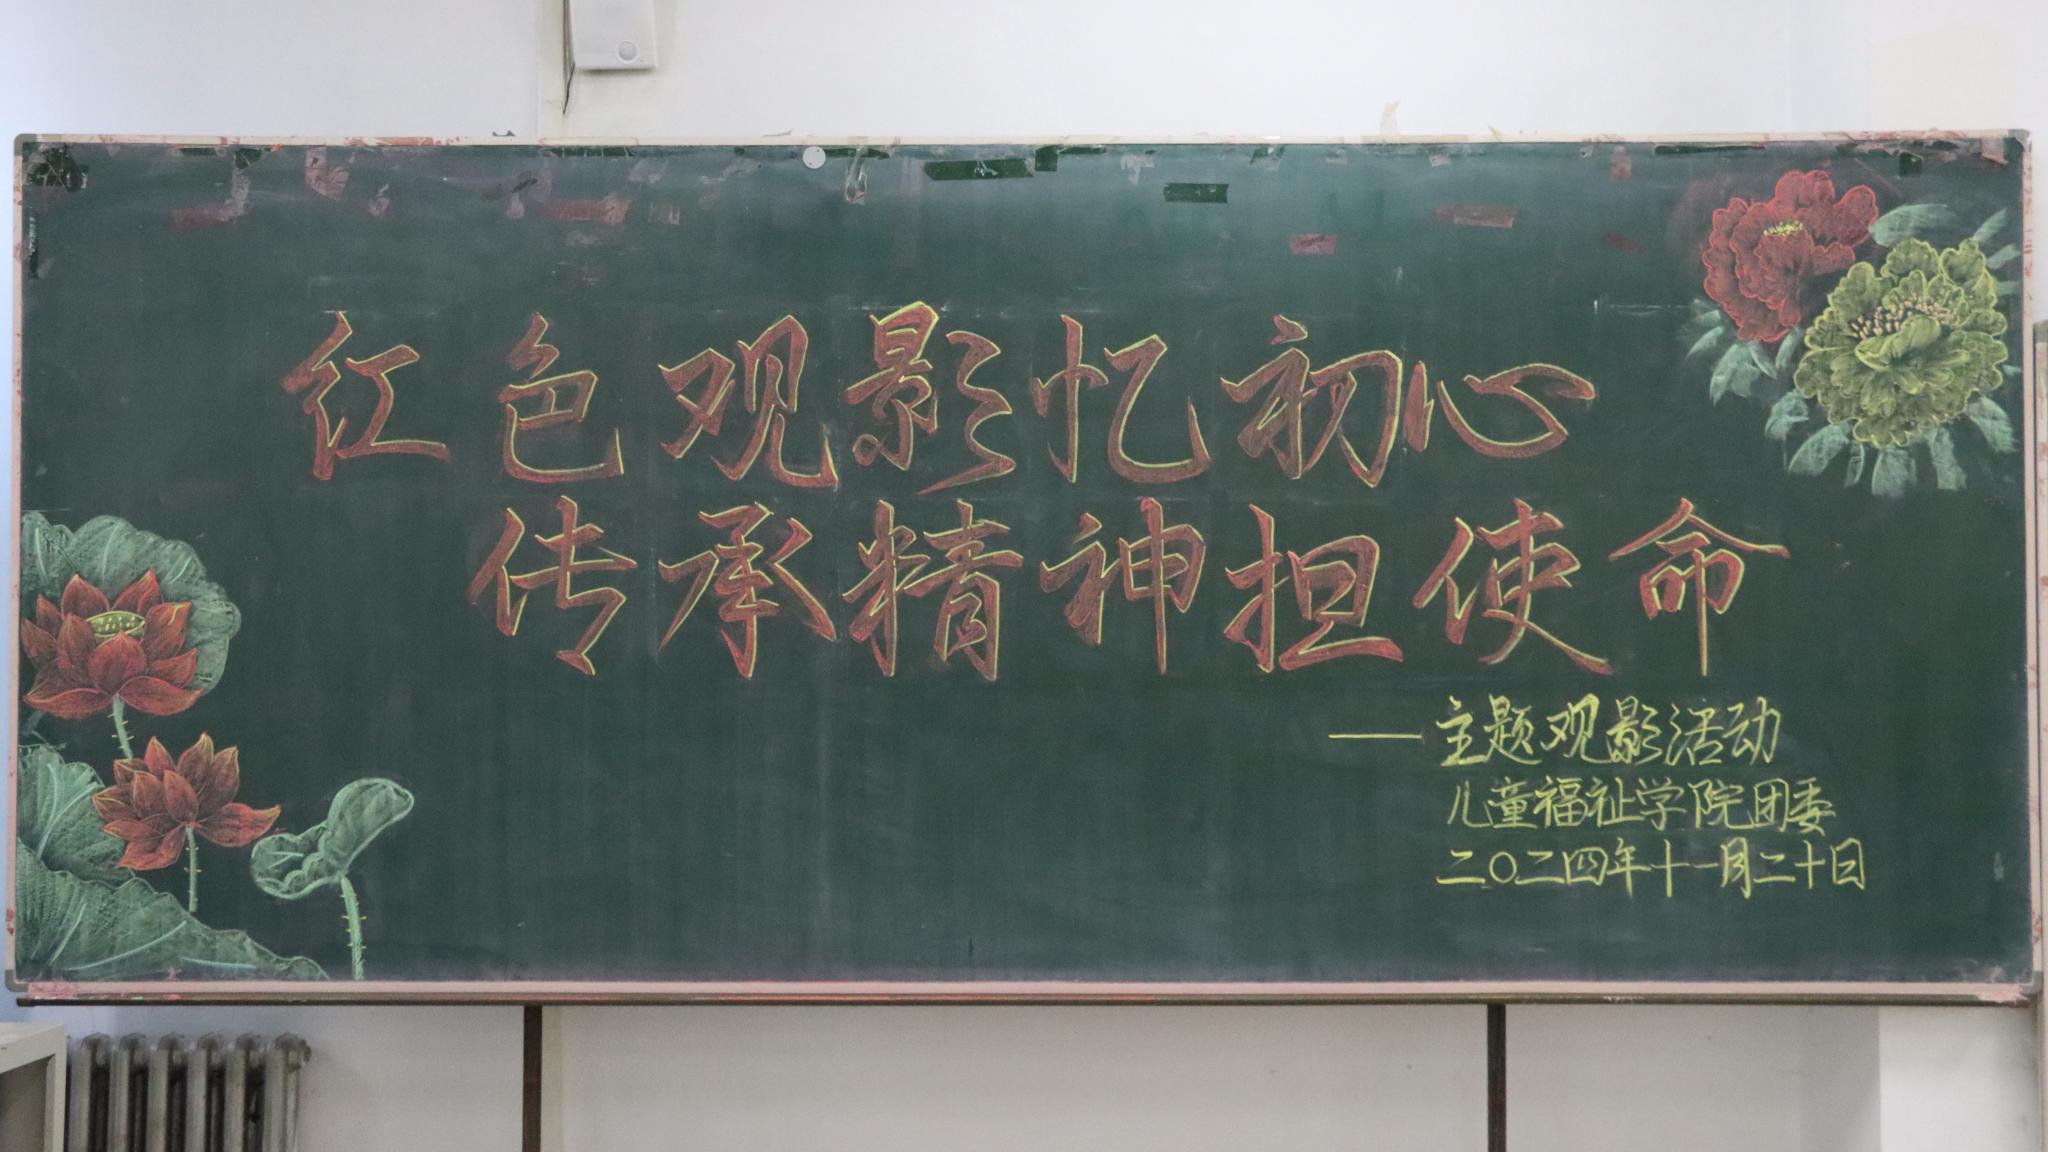 红色观影忆初心
传承精神担使命
——主题观影活动
儿童福祉学院团委
二〇二四年十一月二十日